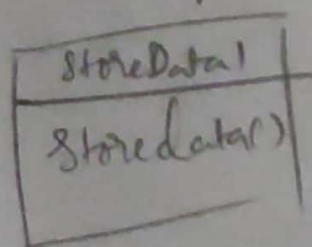 StoreData1
Storedata()